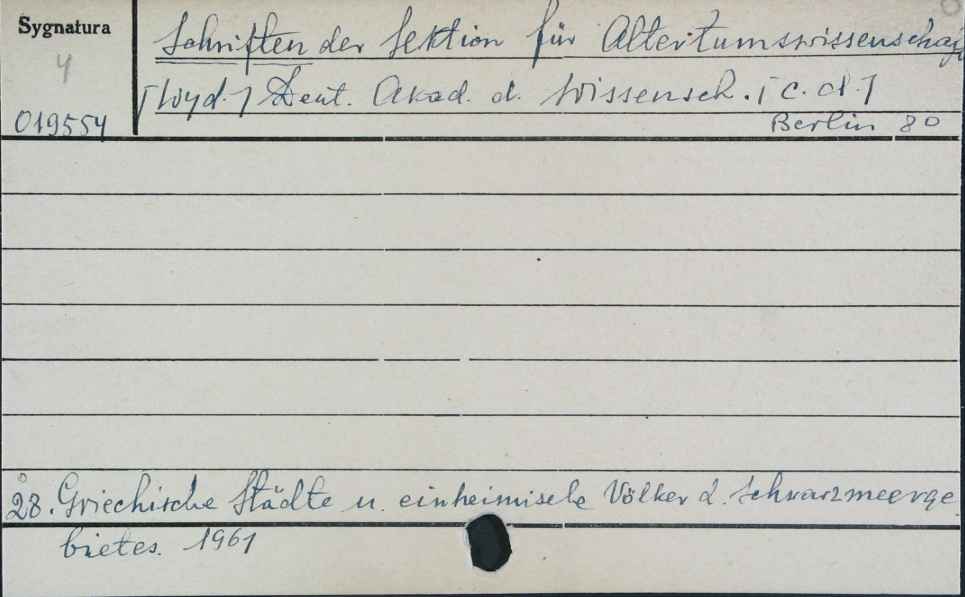 Sygnatura
4
019554
Schriften der Sektion für Altertumswissenschaf
[Wyd.] Deut. Akad. d. Wissensch. [c.d.]
Berlin 8°
28. Griechische Städte u. einheimische Völker d. Schwarzmeerge
bietes. 1961